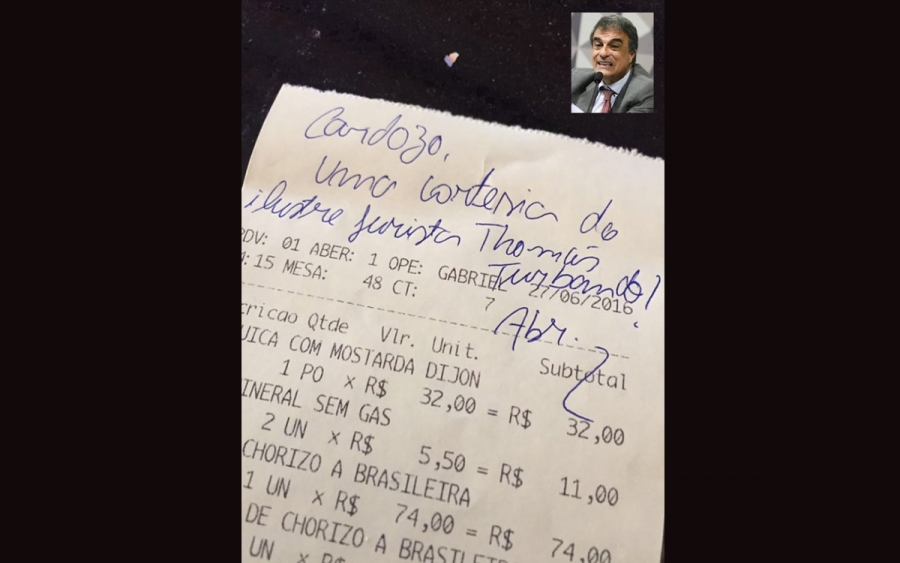 Cardozo,
uma cortesia do
ilustre jurista Thomás
Turbando!
PDV: 01 ABER: 1 OPE: GABRIEL 27/06/2016
: 15 MESA: 48 CT: 7
Abr.
ricao Qtde Vlr. Unit. Subtotal
UICA COM MOSTARDA DIJON
1 PO x R$ 32,00 = R$ 32,00
INERAL SEM GAS
2 UN x R$ 5,50 = R$ 11,00
CHORIZO A BRASILEIRA
1 UN x R$ 74,00 = R$ 74,00
DE CHORIZO A BRASILEI
UN x R$